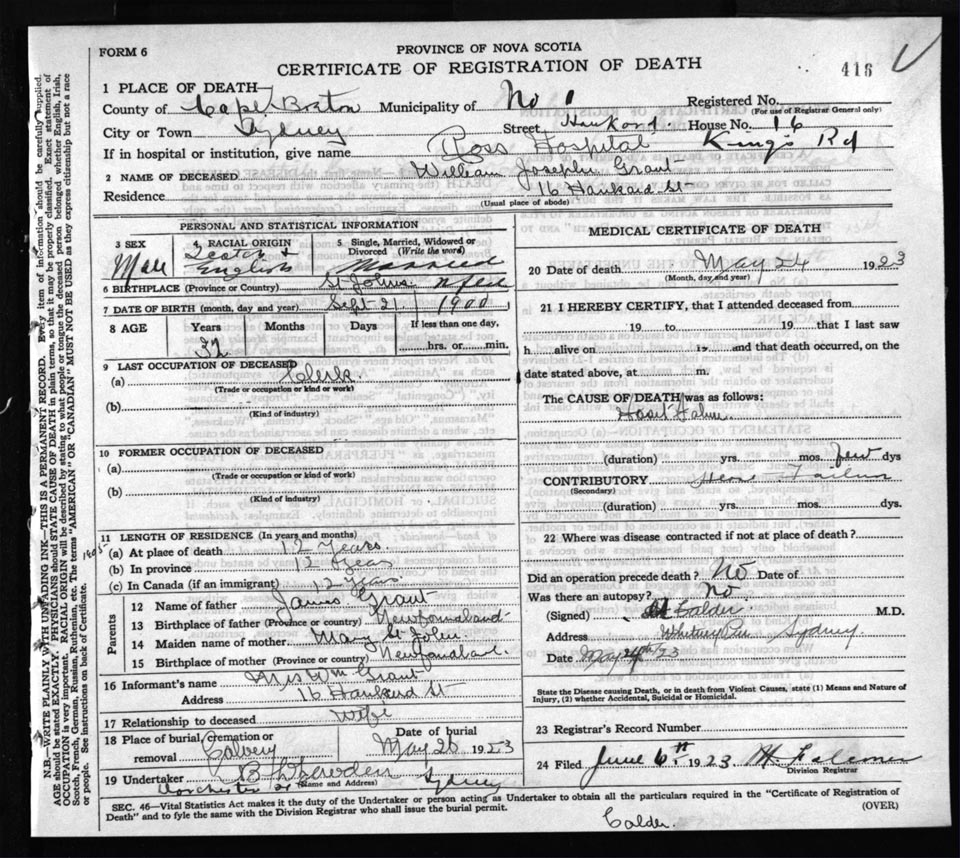 FORM 6
PROVINCE OF NOVA SCOTIA
CERTIFICATE OF REGISTRATION OF DEATH
416
1 PLACE OF DEATH—
County of Cape Breton Municipality of No Registered No.
(For use of Registrar General only)
City or Town Sydney Street Hankard House No. 16
If in hospital or institution, give name Ross Hospital Kings Rd
2 NAME OF DECEASED William Joseph Grant
Residence 16 Hankard St
(Usual place of abode)
PERSONAL AND STATISTICAL INFORMATION
3 SEX Male
4 RACIAL ORIGIN Scotch & English
5 Single, Married, Widowed or Divorced (Write the word) Married
6 BIRTHPLACE (Province or Country) St Johns Nfld
7 DATE OF BIRTH (month, day and year) Sept 21 1900
8 AGE Years Months Days If less than one day,
32 hrs. or min.
9 LAST OCCUPATION OF DECEASED
(a) Clerk
(Trade or occupation or kind or work)
(b)
(Kind of industry)
10 FORMER OCCUPATION OF DECEASED
(a)
(Trade or occupation or kind or work)
(b)
(Kind of industry)
11 LENGTH OF RESIDENCE (In years and months)
(a) At place of death 12 Years
(b) In province 12 Years
(c) In Canada (if an immigrant) 12 Years
Parents
12 Name of father James Grant
13 Birthplace of father (Province or country) Newfoundland
14 Maiden name of mother Mary St John
15 Birthplace of mother (Province or country) Newfoundland
16 Informant's name Mrs Wm Grant
Address 16 Hankard St
17 Relationship to deceased Wife
18 Place of burial, cremation or removal Calvery
Date of burial May 26 1923
19 Undertaker Sydney
(Name and Address)
Dorchester St
MEDICAL CERTIFICATE OF DEATH
20 Date of death May 24 1923
(Month, day and year)
21 I HEREBY CERTIFY, that I attended deceased from
19 to 19 that I last saw
h alive on 19 and that death occurred, on the
date stated above, at m.
The CAUSE OF DEATH was as follows:
(duration) yrs. mos. few dys
CONTRIBUTORY
(Secondary)
(duration) yrs. mos. dys.
22 Where was disease contracted if not at place of death?
Did an operation precede death? No Date of
Was there an autopsy? No
(Signed) Calder M.D.
Address Whitney Pier Sydney
Date May 24th 23
State the Disease causing Death, or in death from Violent Causes, state (1) Means and Nature of
Injury, (2) whether Accidental, Suicidal or Homicidal.
23 Registrar's Record Number
24 Filed June 6th 1923
Division Registrar
SEC. 46—Vital Statistics Act makes it the duty of the Undertaker or person acting as Undertaker to obtain all the particulars required in the "Certificate of Registration of
Death" and to fyle the same with the Division Registrar who shall issue the burial permit. (OVER)
Calder.
N.B.—WRITE PLAINLY WITH UNFADING INK—THIS IS A PERMANENT RECORD. Every item of information should be carefully supplied.
AGE should be stated EXACTLY. PHYSICIANS should STATE CAUSE OF DEATH in plain terms, so that it may be properly classified. Exact statement of
OCCUPATION is very important. RACIAL ORIGIN will be described by stating to what people or tongue the deceased person belonged whether English, Irish,
Scotch, French, German, Russian, Ruthenian, etc. The terms "AMERICAN" OR "CANADIAN" MUST NOT BE USED as they express citizenship but not a race
or people. See instructions on back of Certificate.